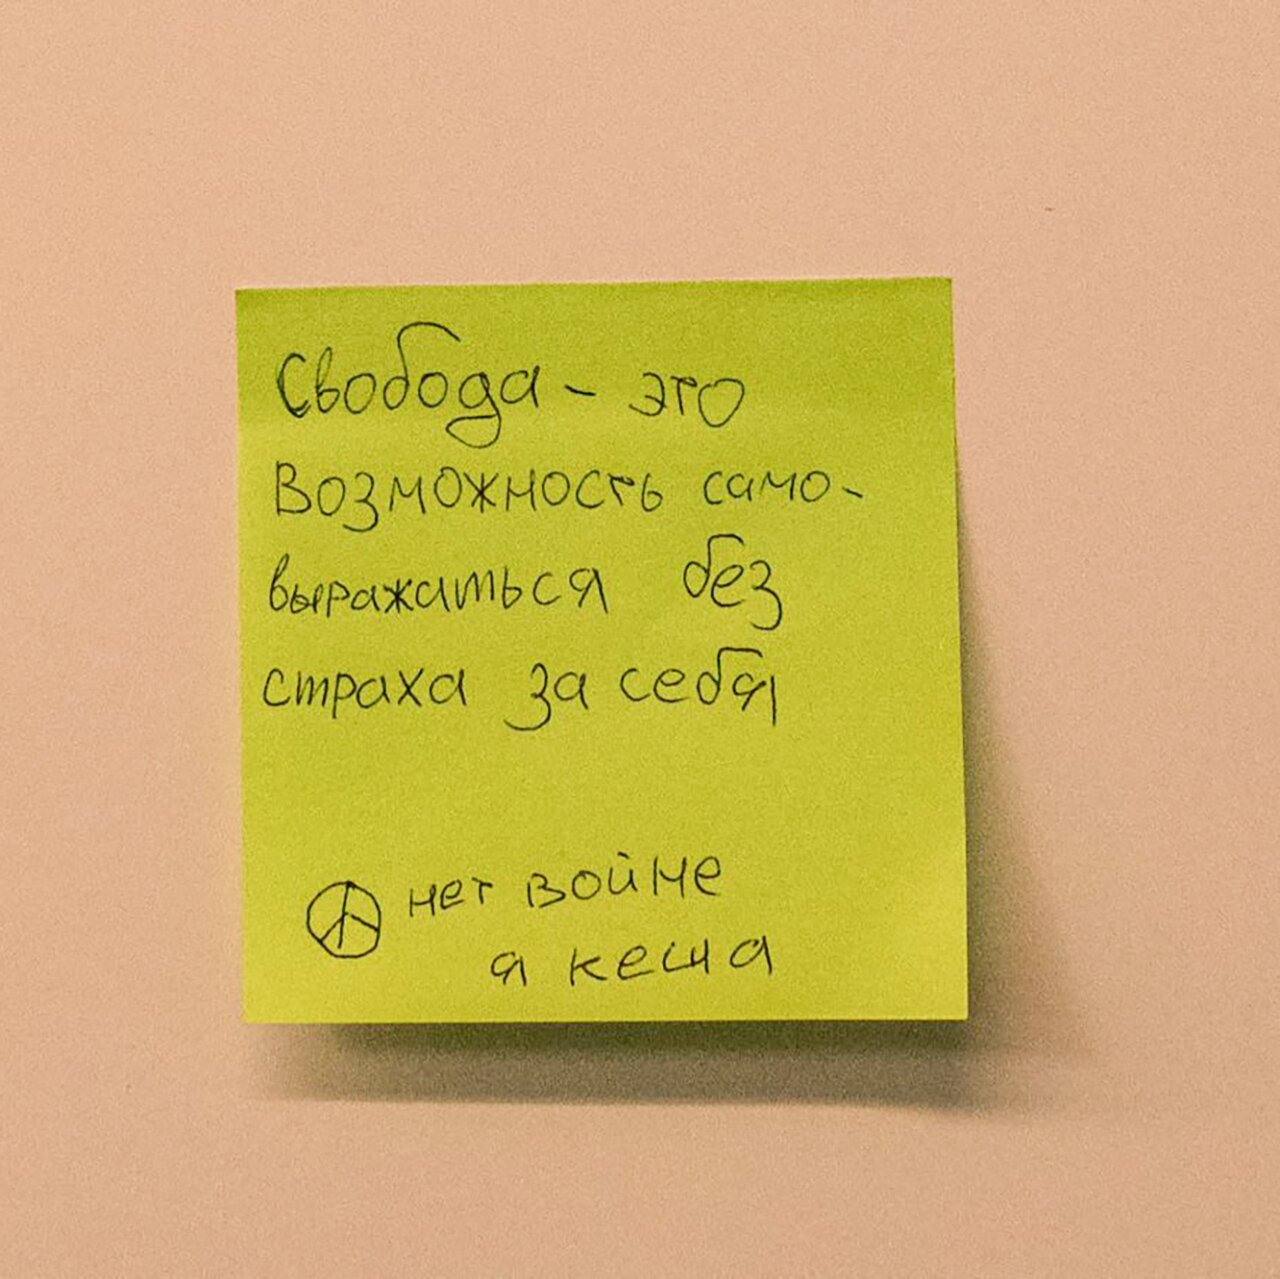 Свобода - это
Возможность само-
выражаться без
страха за себя
нет войне
я кеша